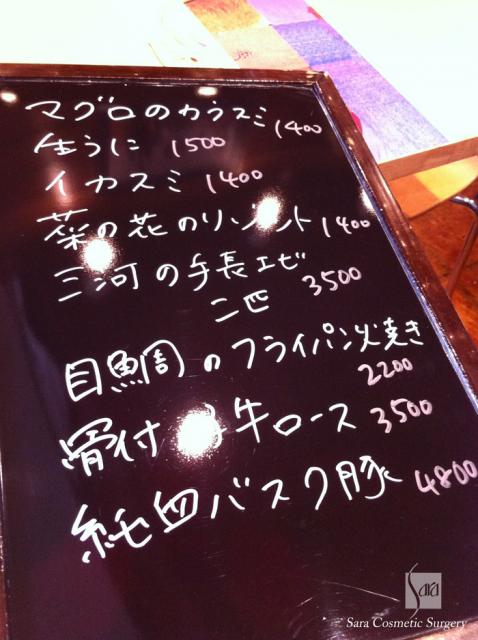 マグロのカラスミ 1400
生うに 1500
イカスミ 1400
菜の花のリゾット 1400
三河の手長エビ 3500
二匹
目鯛のフライパン焼き
2200
骨付 牛ロース 3500
純血バスク豚 4800
Sara
Sara Cosmetic Surgery